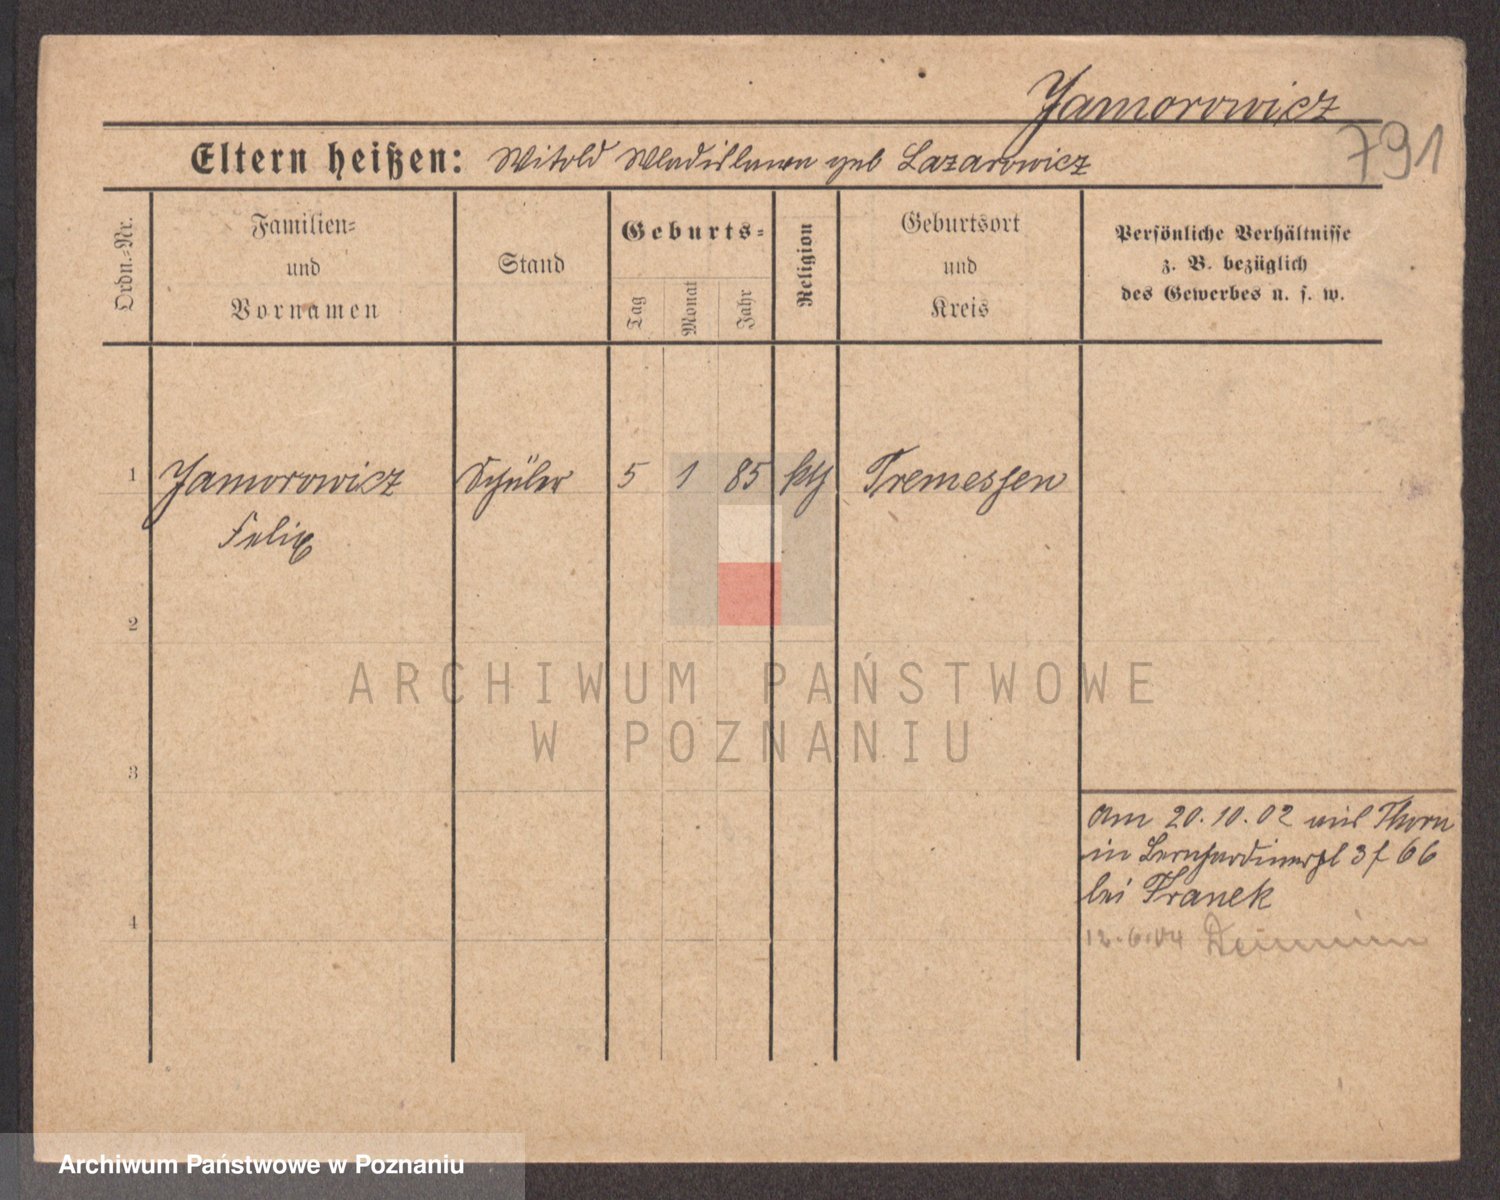 Jamorowicz
791
Eltern heißen: Witold Wladislawa geb Lazarowicz
Ordn.-Nr.
Familien-
und
Vornamen
Stand
Geburts-
Tag
Monat
Jahr
Religion
Geburtsort
und
Kreis
Persönliche Verhältnisse
z. B. bezüglich
des Gewerbes u. s. w.
1 Jamorowicz Schüler 5 1 85 kth Tremessen
Felix
2
3
4
Am 20.10.02 aus Thorn
in Bernhardinerpl 3 f 66
bei Franek
12.6.04
ARCHIWUM PAŃSTWOWE
W POZNANIU
Archiwum Państwowe w Poznaniu